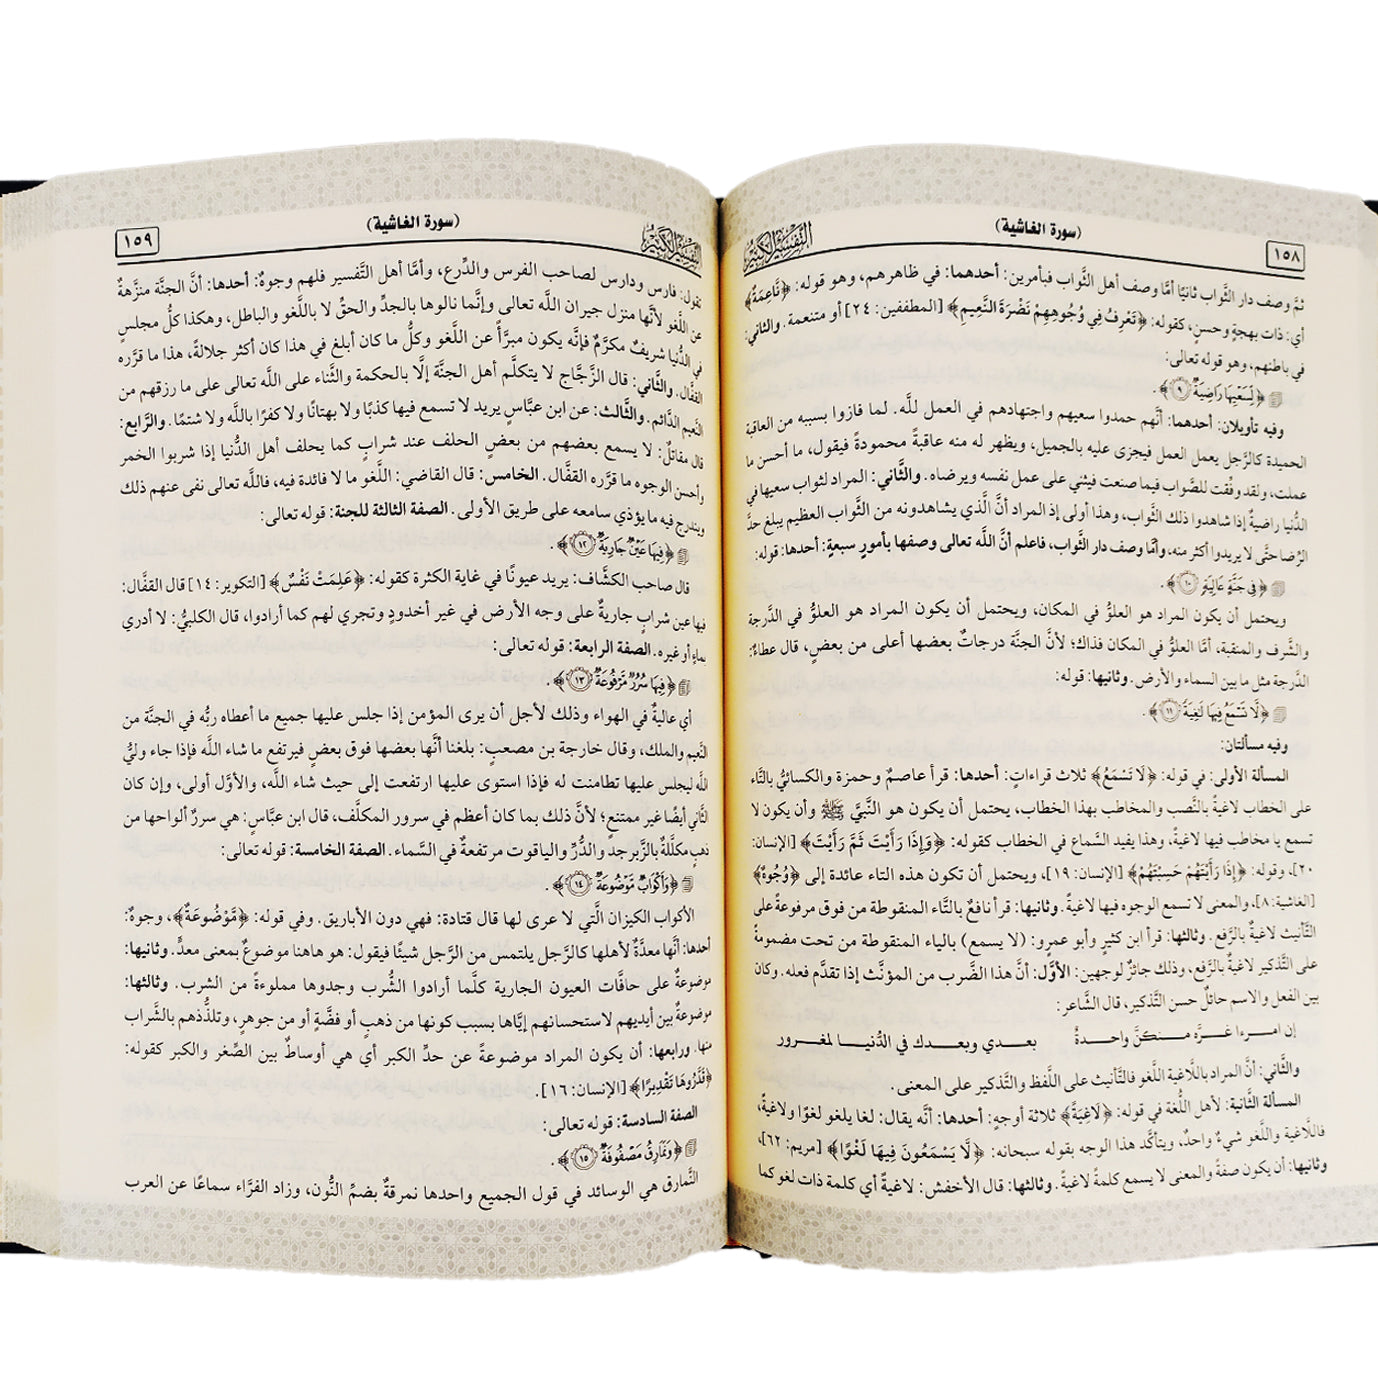 ١٥٨
(سورة الغاشية)
التفسير الكبير
ثمَّ وصف دار الثَّواب ثانيًا أمَّا وصف أهل الثَّواب فبأمرين: أحدهما: في ظاهرهم، وهو قوله: ﴿نَّاعِمَةٌ﴾
أي: ذات بهجةٍ وحسنٍ، كقوله: ﴿تَعْرِفُ فِي وُجُوهِهِمْ نَضْرَةَ النَّعِيمِ﴾ [المطففين: ٢٤] أو متنعمة. والثاني:
في باطنهم، وهو قوله تعالى:
﴿لِّسَعْيِهَا رَاضِيَةٌ ٩﴾.
وفيه تأويلان: أحدهما: أنَّهم حمدوا سعيهم واجتهادهم في العمل للَّه. لما فازوا بسببه من العاقبة
الحميدة كالرَّجل يعمل العمل فيجزى عليه بالجميل، ويظهر له منه عاقبةٌ محمودةٌ فيقول، ما أحسن ما
عملت، ولقد وفِّقت للصَّواب فيما صنعت فيثني على عمل نفسه ويرضاه. والثَّاني: المراد لثواب سعيها في
الدُّنيا راضيةٌ إذا شاهدوا ذلك الثَّواب، وهذا أولى إذ المراد أنَّ الَّذي يشاهدونه من الثَّواب العظيم يبلغ حدَّ
الرِّضا حتَّى لا يريدوا أكثر منه، وأمَّا وصف دار الثَّواب، فاعلم أنَّ اللَّه تعالى وصفها بأمورٍ سبعةٍ: أحدها: قوله:
﴿فِي جَنَّةٍ عَالِيَةٍ ١٠﴾.
ويحتمل أن يكون المراد هو العلوُّ في المكان، ويحتمل أن يكون المراد هو العلوُّ في الدَّرجة
والشَّرف والمنقبة، أمَّا العلوُّ في المكان فذاك؛ لأنَّ الجنَّة درجاتٌ بعضها أعلى من بعضٍ، قال عطاءٌ:
الدَّرجة مثل ما بين السماء والأرض. وثانيها: قوله:
﴿لَّا تَسْمَعُ فِيهَا لَٰغِيَةً ١١﴾.
وفيه مسألتان:
المسألة الأولى: في قوله: ﴿لَا تَسْمَعُ﴾ ثلاث قراءاتٍ: أحدها: قرأ عاصمٌ وحمزة والكسائيُّ بالتَّاء
على الخطاب لاغيةً بالنَّصب والمخاطب بهذا الخطاب، يحتمل أن يكون هو النَّبيَّ ﷺ وأن يكون لا
تسمع يا مخاطب فيها لاغيةً، وهذا يفيد السَّماع في الخطاب كقوله: ﴿وَإِذَا رَأَيْتَ ثَمَّ رَأَيْتَ﴾ [الإنسان:
٢٠]، وقوله: ﴿إِذَا رَأَيْتَهُمْ حَسِبْتَهُمْ﴾ [الإنسان: ١٩]، ويحتمل أن تكون هذه التاء عائدة إلى ﴿وُجُوهٌ﴾
[الغاشية: ٨]، والمعنى لا تسمع الوجوه فيها لاغيةً. وثانيها: قرأ نافعٌ بالتَّاء المنقوطة من فوق مرفوعةً على
التَّأنيث لاغيةٌ بالرَّفع. وثالثها: قرأ ابن كثيرٍ وأبو عمرو: (لا يسمع) بالياء المنقوطة من تحت مضمومةً
على التَّذكير لاغيةٌ بالرَّفع، وذلك جائزٌ لوجهين: الأوَّل: أنَّ هذا الضَّرب من المؤنَّث إذا تقدَّم فعله. وكان
بين الفعل والاسم حائلٌ حسن التَّذكير، قال الشَّاعر:
إن امرءا غرَّه منكنَّ واحدةٌ بعدي وبعدك في الدُّنيا لمغرور
والثَّاني: أنَّ المراد باللَّاغية اللَّغو فالتَّأنيث على اللَّفظ والتَّذكير على المعنى.
المسألة الثَّانية: لأهل اللُّغة في قوله: ﴿لَاغِيَةً﴾ ثلاثة أوجهٍ: أحدها: أنَّه يقال: لغا يلغو لغوًا ولاغيةً،
فاللَّاغية واللَّغو شيءٌ واحدٌ، ويتأكَّد هذا الوجه بقوله سبحانه: ﴿لَّا يَسْمَعُونَ فِيهَا لَغْوًا﴾ [مريم: ٦٢]،
وثانيها: أن يكون صفةً والمعنى لا يسمع كلمةً لاغيةً. وثالثها: قال الأخفش: لاغيةً أي كلمة ذات لغو كما
التفسير الكبير
(سورة الغاشية)
١٥٩
تقول: فارس ودارس لصاحب الفرس والدِّرع، وأمَّا أهل التَّفسير فلهم وجوهٌ: أحدها: أنَّ الجنَّة منزَّهةٌ
عن اللَّغو لأنَّها منزل جيران اللَّه تعالى وإنَّما نالوها بالجدِّ والحقِّ لا باللَّغو والباطل، وهكذا كلُّ مجلسٍ
في الدُّنيا شريفٌ مكرَّمٌ فإنَّه يكون مبرَّأً عن اللَّغو وكلُّ ما كان أبلغ في هذا كان أكثر جلالةً، هذا ما قرَّره
القفَّال. والثَّاني: قال الزَّجَّاج لا يتكلَّم أهل الجنَّة إلَّا بالحكمة والثَّناء على اللَّه تعالى على ما رزقهم من
النَّعيم الدَّائم. والثَّالث: عن ابن عبَّاسٍ يريد لا تسمع فيها كذبًا ولا بهتانًا ولا كفرًا باللَّه ولا شتمًا. والرَّابع:
قال مقاتلٌ: لا يسمع بعضهم من بعضٍ الحلف عند شرابٍ كما يحلف أهل الدُّنيا إذا شربوا الخمر
وأحسن الوجوه ما قرَّره القفَّال. الخامس: قال القاضي: اللَّغو ما لا فائدة فيه، فاللَّه تعالى نفى عنهم ذلك
ويندرج فيه ما يؤذي سامعه على طريق الأولى. الصفة الثالثة للجنة: قوله تعالى:
﴿فِيهَا عَيْنٌ جَارِيَةٌ ١٢﴾.
قال صاحب الكشَّاف: يريد عيونًا في غاية الكثرة كقوله: ﴿عَلِمَتْ نَفْسٌ﴾ [التكوير: ١٤] قال القفَّال:
فيها عين شرابٍ جاريةٌ على وجه الأرض في غير أخدودٍ وتجري لهم كما أرادوا، قال الكلبيُّ: لا أدري
بماءٍ أو غيره. الصفة الرابعة: قوله تعالى:
﴿فِيهَا سُرُرٌ مَّرْفُوعَةٌ ١٣﴾.
أي عاليةٌ في الهواء وذلك لأجل أن يرى المؤمن إذا جلس عليها جميع ما أعطاه ربُّه في الجنَّة من
النَّعيم والملك، وقال خارجة بن مصعبٍ: بلغنا أنَّها بعضها فوق بعضٍ فيرتفع ما شاء اللَّه فإذا جاء وليُّ
اللَّه ليجلس عليها تطامنت له فإذا استوى عليها ارتفعت إلى حيث شاء اللَّه، والأوَّل أولى، وإن كان
الثَّاني أيضًا غير ممتنعٍ؛ لأنَّ ذلك بما كان أعظم في سرور المكلَّف، قال ابن عبَّاسٍ: هي سررٌ ألواحها من
ذهبٍ مكلَّلةٌ بالزَّبرجد والدُّرِّ والياقوت مرتفعةٌ في السَّماء. الصفة الخامسة: قوله تعالى:
﴿وَأَكْوَابٌ مَّوْضُوعَةٌ ١٤﴾.
الأكواب الكيزان الَّتي لا عرى لها قال قتادة: فهي دون الأباريق. وفي قوله: ﴿مَّوْضُوعَةٌ﴾، وجوهٌ:
أحدها: أنَّها معدَّةٌ لأهلها كالرَّجل يلتمس من الرَّجل شيئًا فيقول: هو هاهنا موضوعٌ بمعنى معدٍّ. وثانيها:
موضوعةٌ على حافَّات العيون الجارية كلَّما أرادوا الشُّرب وجدوها مملوءةً من الشرب. وثالثها:
موضوعةٌ بين أيديهم لاستحسانهم إيَّاها بسبب كونها من ذهبٍ أو فضَّةٍ أو من جوهرٍ، وتلذُّذهم بالشَّراب
منها. ورابعها: أن يكون المراد موضوعةً عن حدِّ الكبر أي هي أوساطٌ بين الصِّغر والكبر كقوله:
﴿قَدَّرُوهَا تَقْدِيرًا﴾ [الإنسان: ١٦].
الصفة السادسة: قوله تعالى:
﴿وَنَمَارِقُ مَصْفُوفَةٌ ١٥﴾.
النَّمارق هي الوسائد في قول الجميع واحدها نمرقةٌ بضمِّ النُّون، وزاد الفرَّاء سماعًا عن العرب